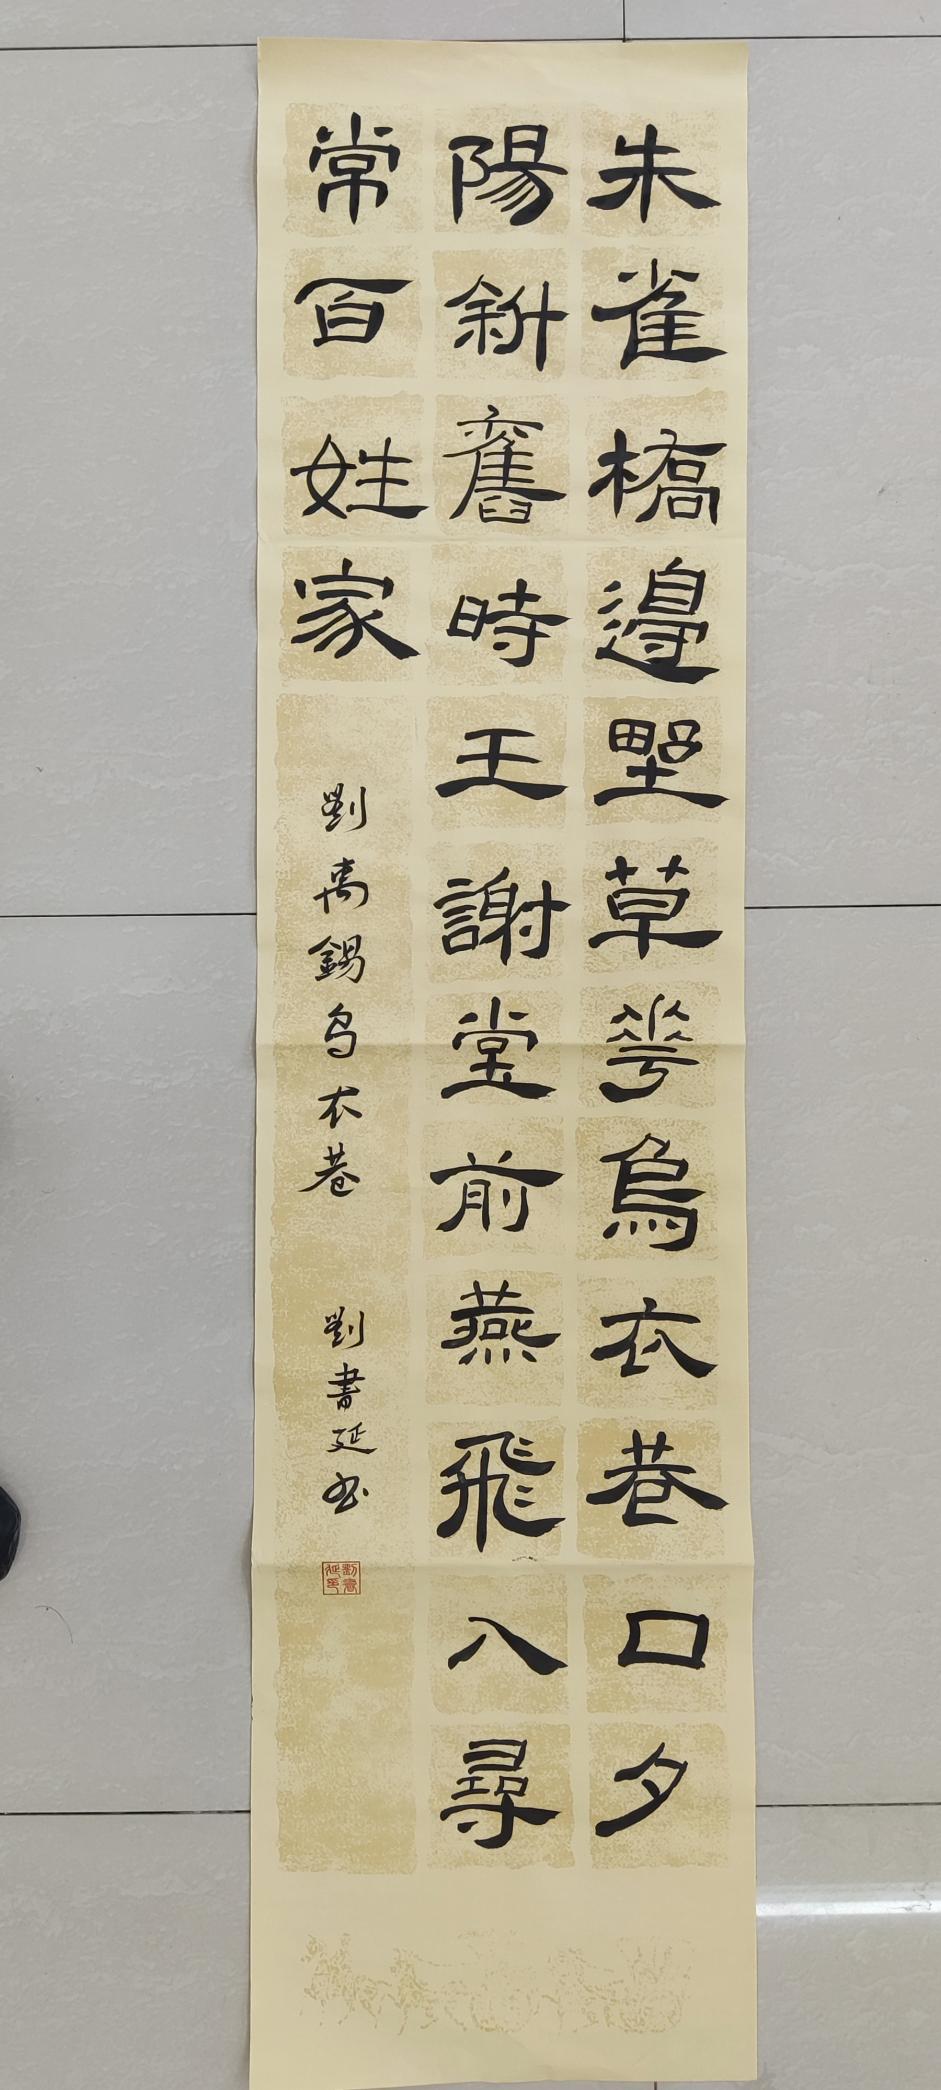 朱雀橋邊野草花烏衣巷口夕
陽斜舊時王謝堂前燕飛入尋
常百姓家
劉禹錫烏衣巷
劉書延书
劉書延印